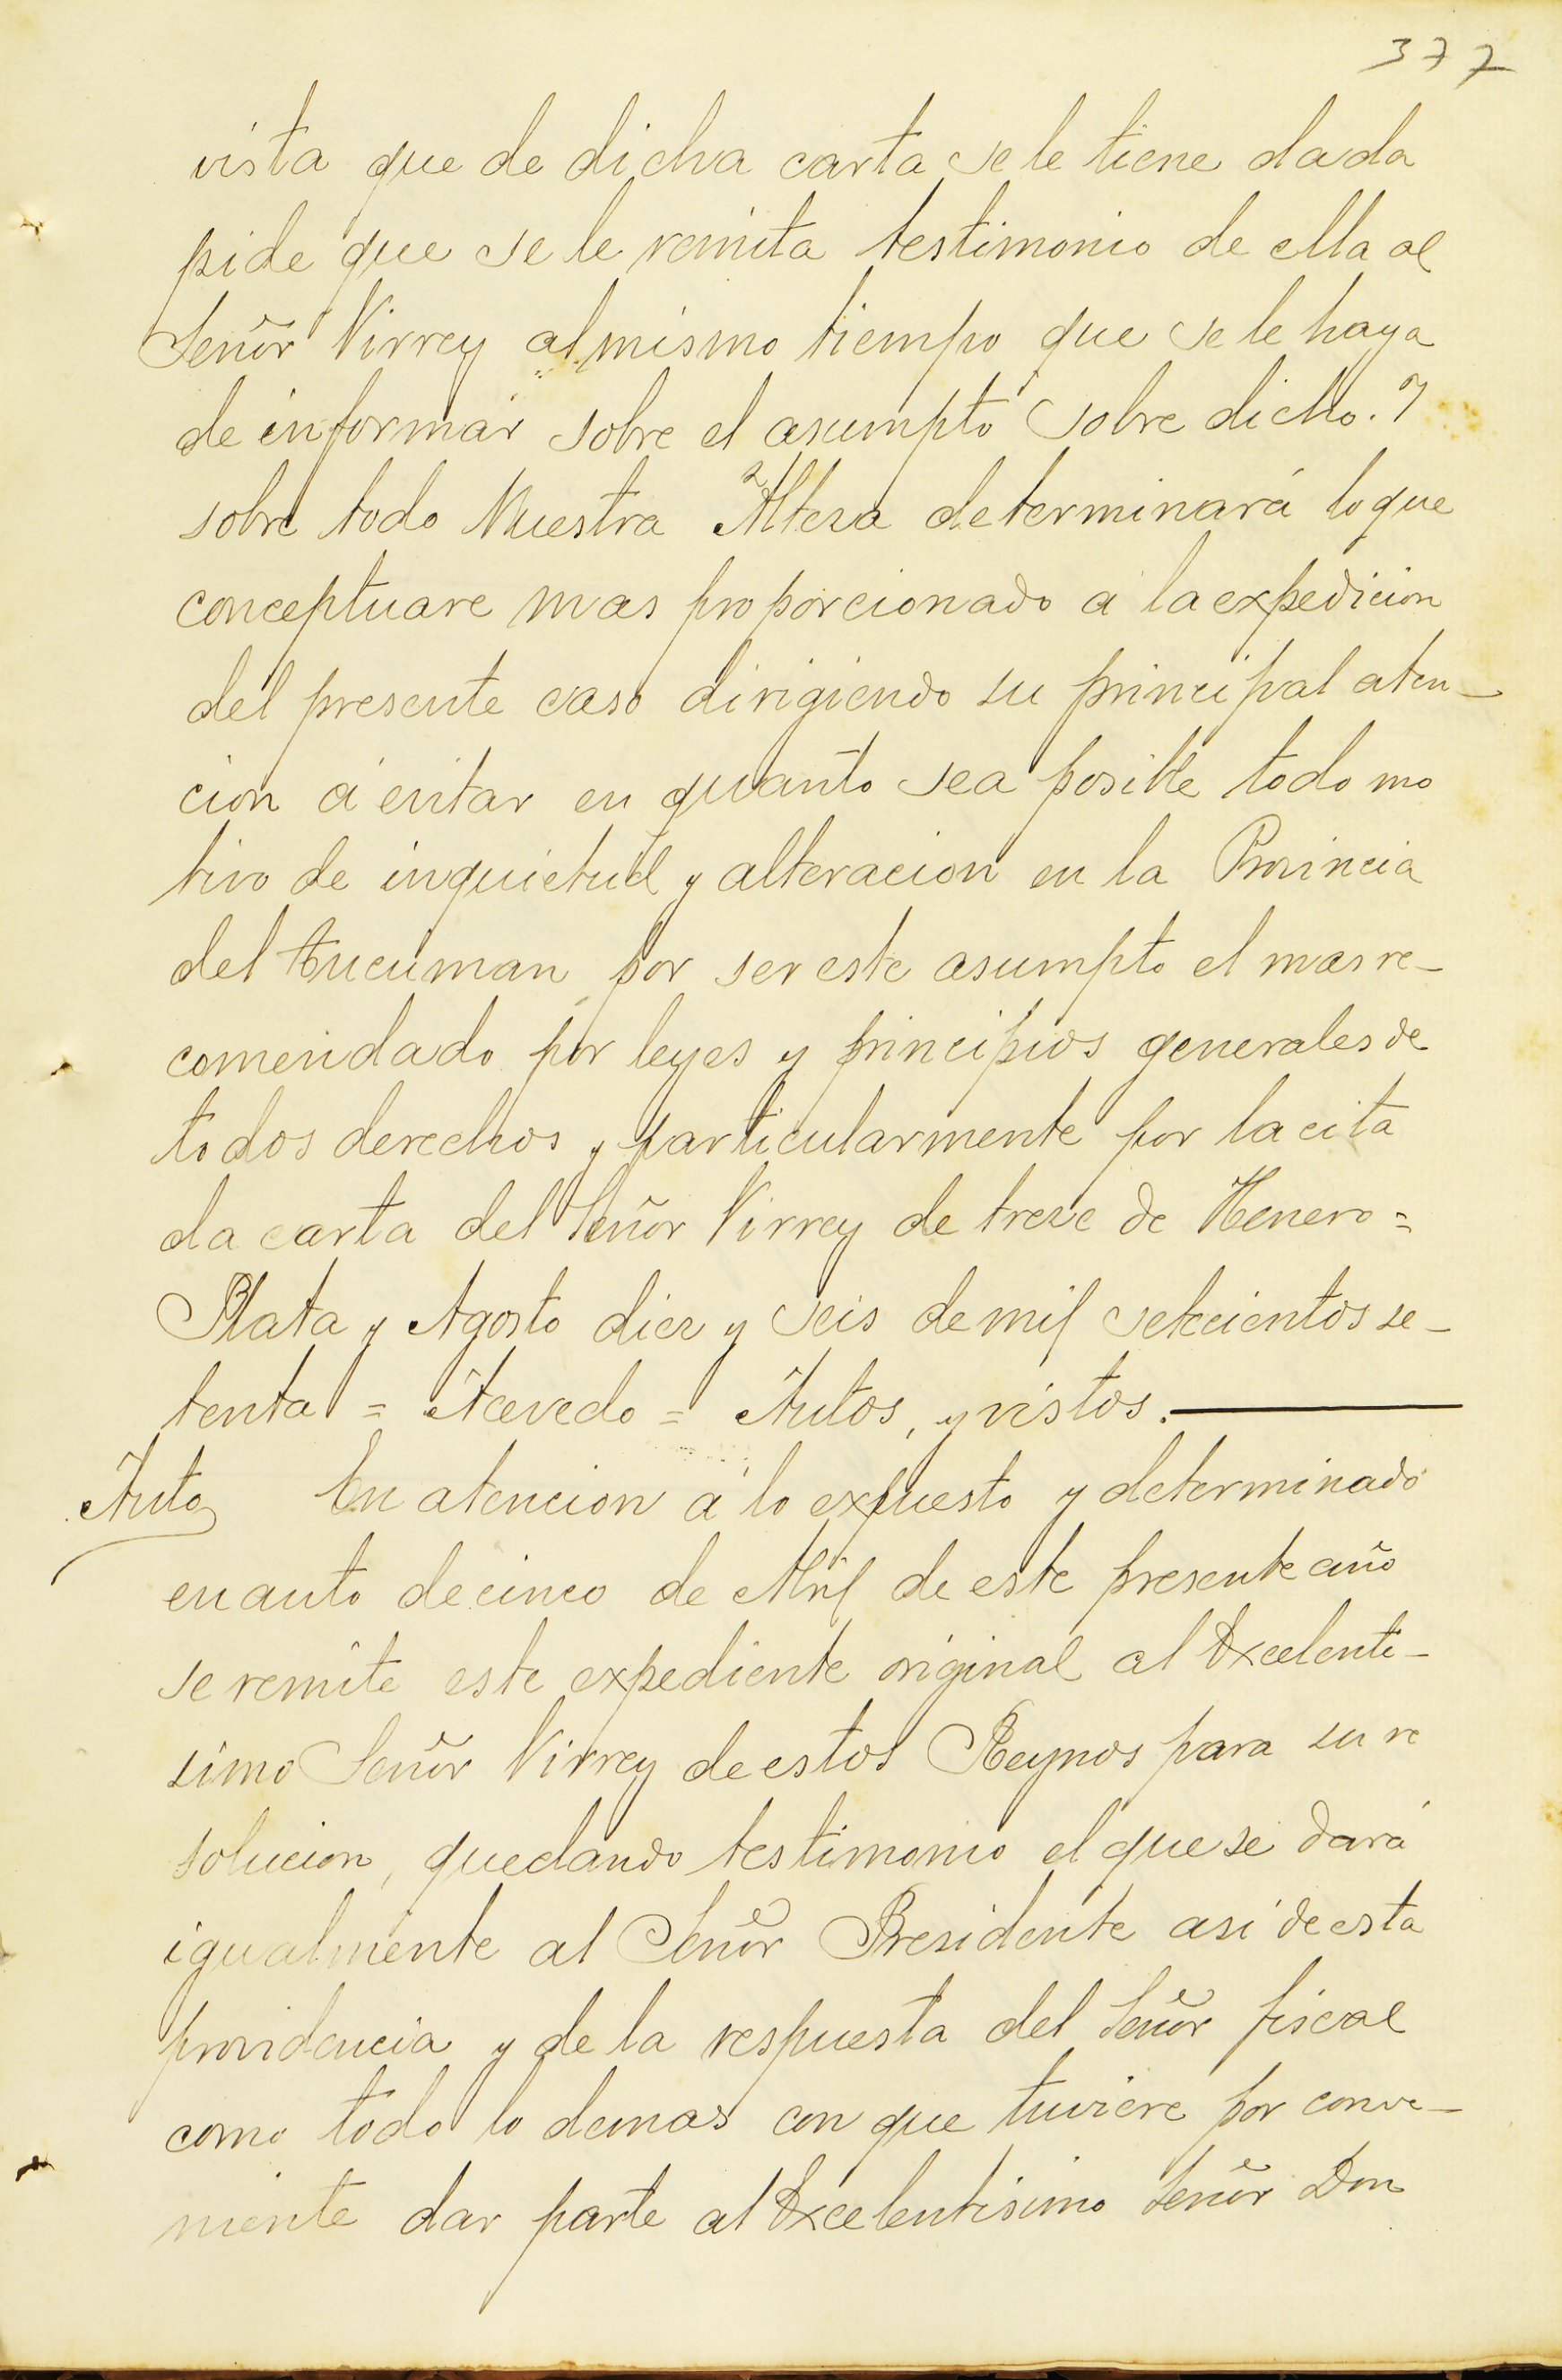 377
vista que de dicha carta se le tiene dada
pide que se le remita testimonio de ella al
Señor Virrey al mismo tiempo que se le haya
de informar sobre el asumpto sobre dicho. Y
sobre todo Vuestra Alteza determinará lo que
conceptuare mas proporcionado á la expedicion
del presente caso dirigiendo su principal aten-
cion á evitar en quanto sea posible todo mo
tivo de inquietud y alteracion en la Provincia
del Tucuman por ser este asumpto el mas re-
comendado por leyes y principios generales de
todos derechos y particularmente por la cita
da carta del Señor Virrey de treze de Henero =
Plata y Agosto diez y seis de mil setecientos se-
tenta = Acevedo = Autos, y vistos.
Auto En atencion á lo expuesto y determinado
en auto de cinco de Abril de este presente año
se remite este expediente original al Excelenti-
simo Señor Virrey de estos Reynos para su re
solucion, quedando testimonio el que se dará
igualmente al Señor Presidente asi de esta
providencia y de la respuesta del Señor fiscal
como todo lo demas con que tuviere por conve-
niente dar parte al Excelentisimo Señor Don